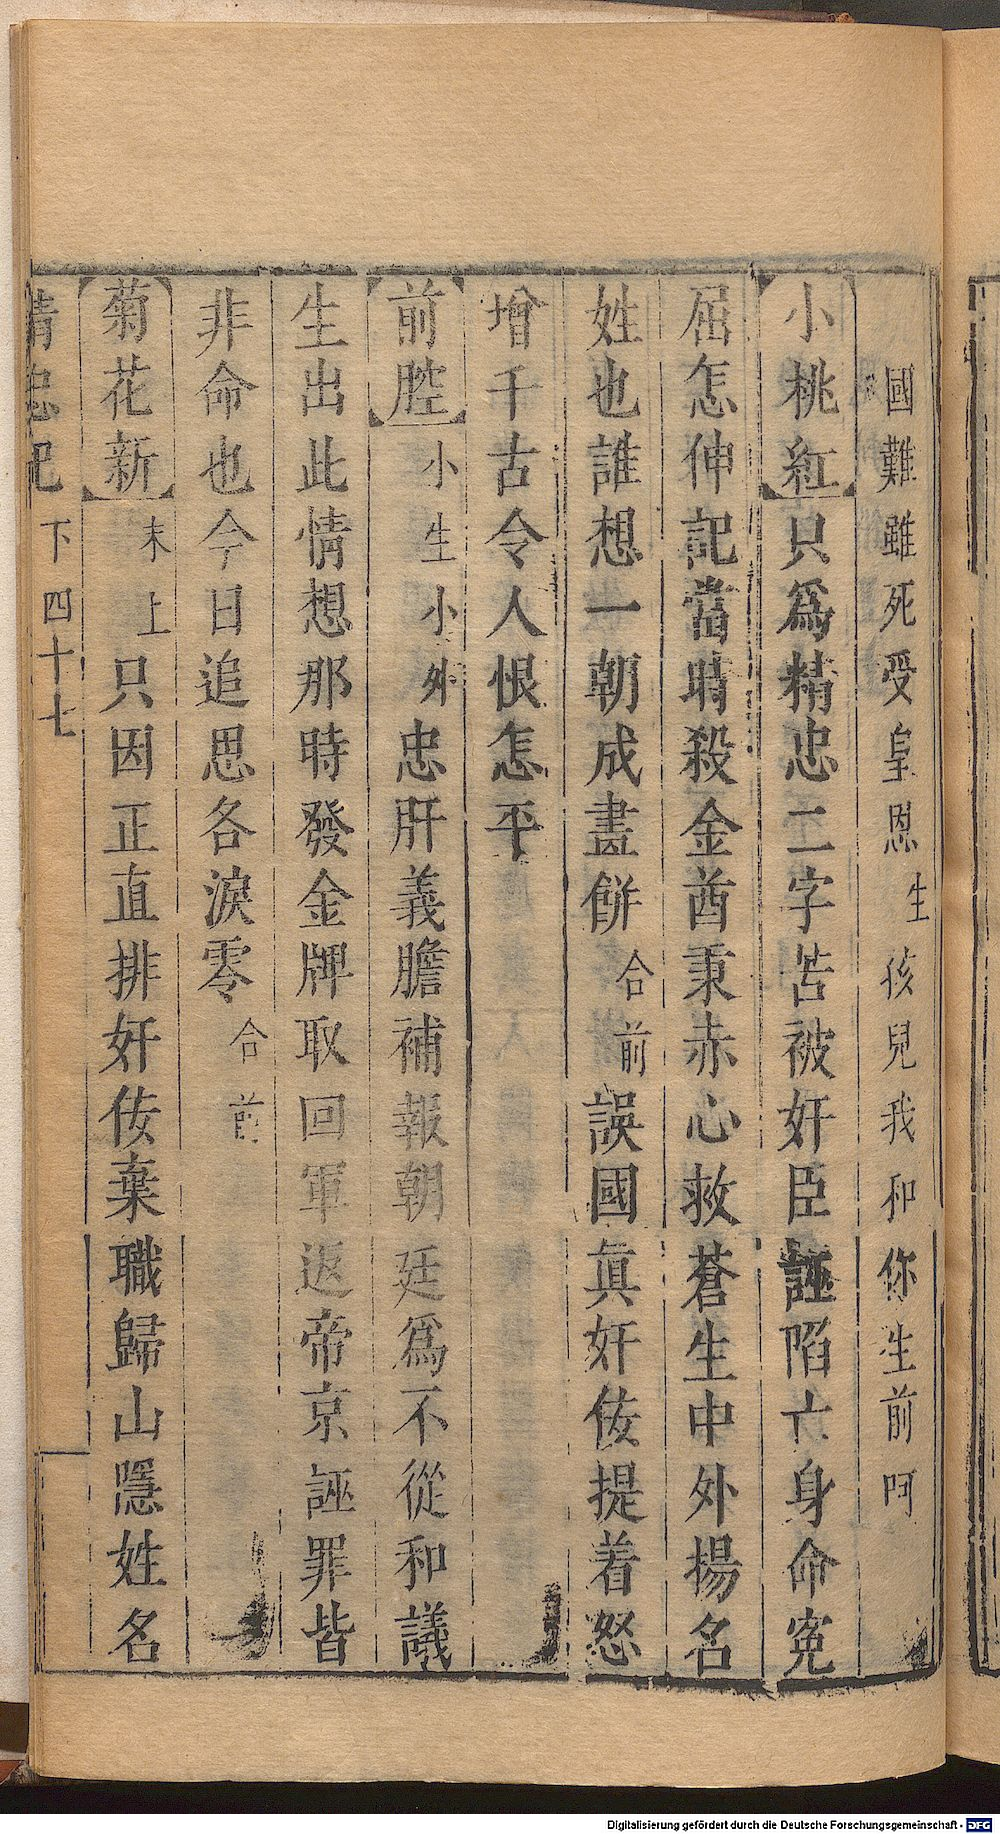 國難雖死受皇恩生孩兒我和你生前呵
【小桃紅】只爲精忠二字苦被奸臣誣陷亡身命寃
屈怎伸記當時殺金酋秉赤心救蒼生中外揚名
姓也誰想一朝成畫餅合前誤國眞奸佞提着怒
增千古令人恨怎平
【前腔】小生小外忠肝義膽補報朝廷爲不從和議
生出此情想那時發金牌取回軍返帝京誣罪皆
非命也今日追思各淚零合前
【菊花新】末上只因正直排奸佞棄職歸山隱姓名
精忠記 下 四十七
Digitalisierung gefördert durch die Deutsche Forschungsgemeinschaft - DFG